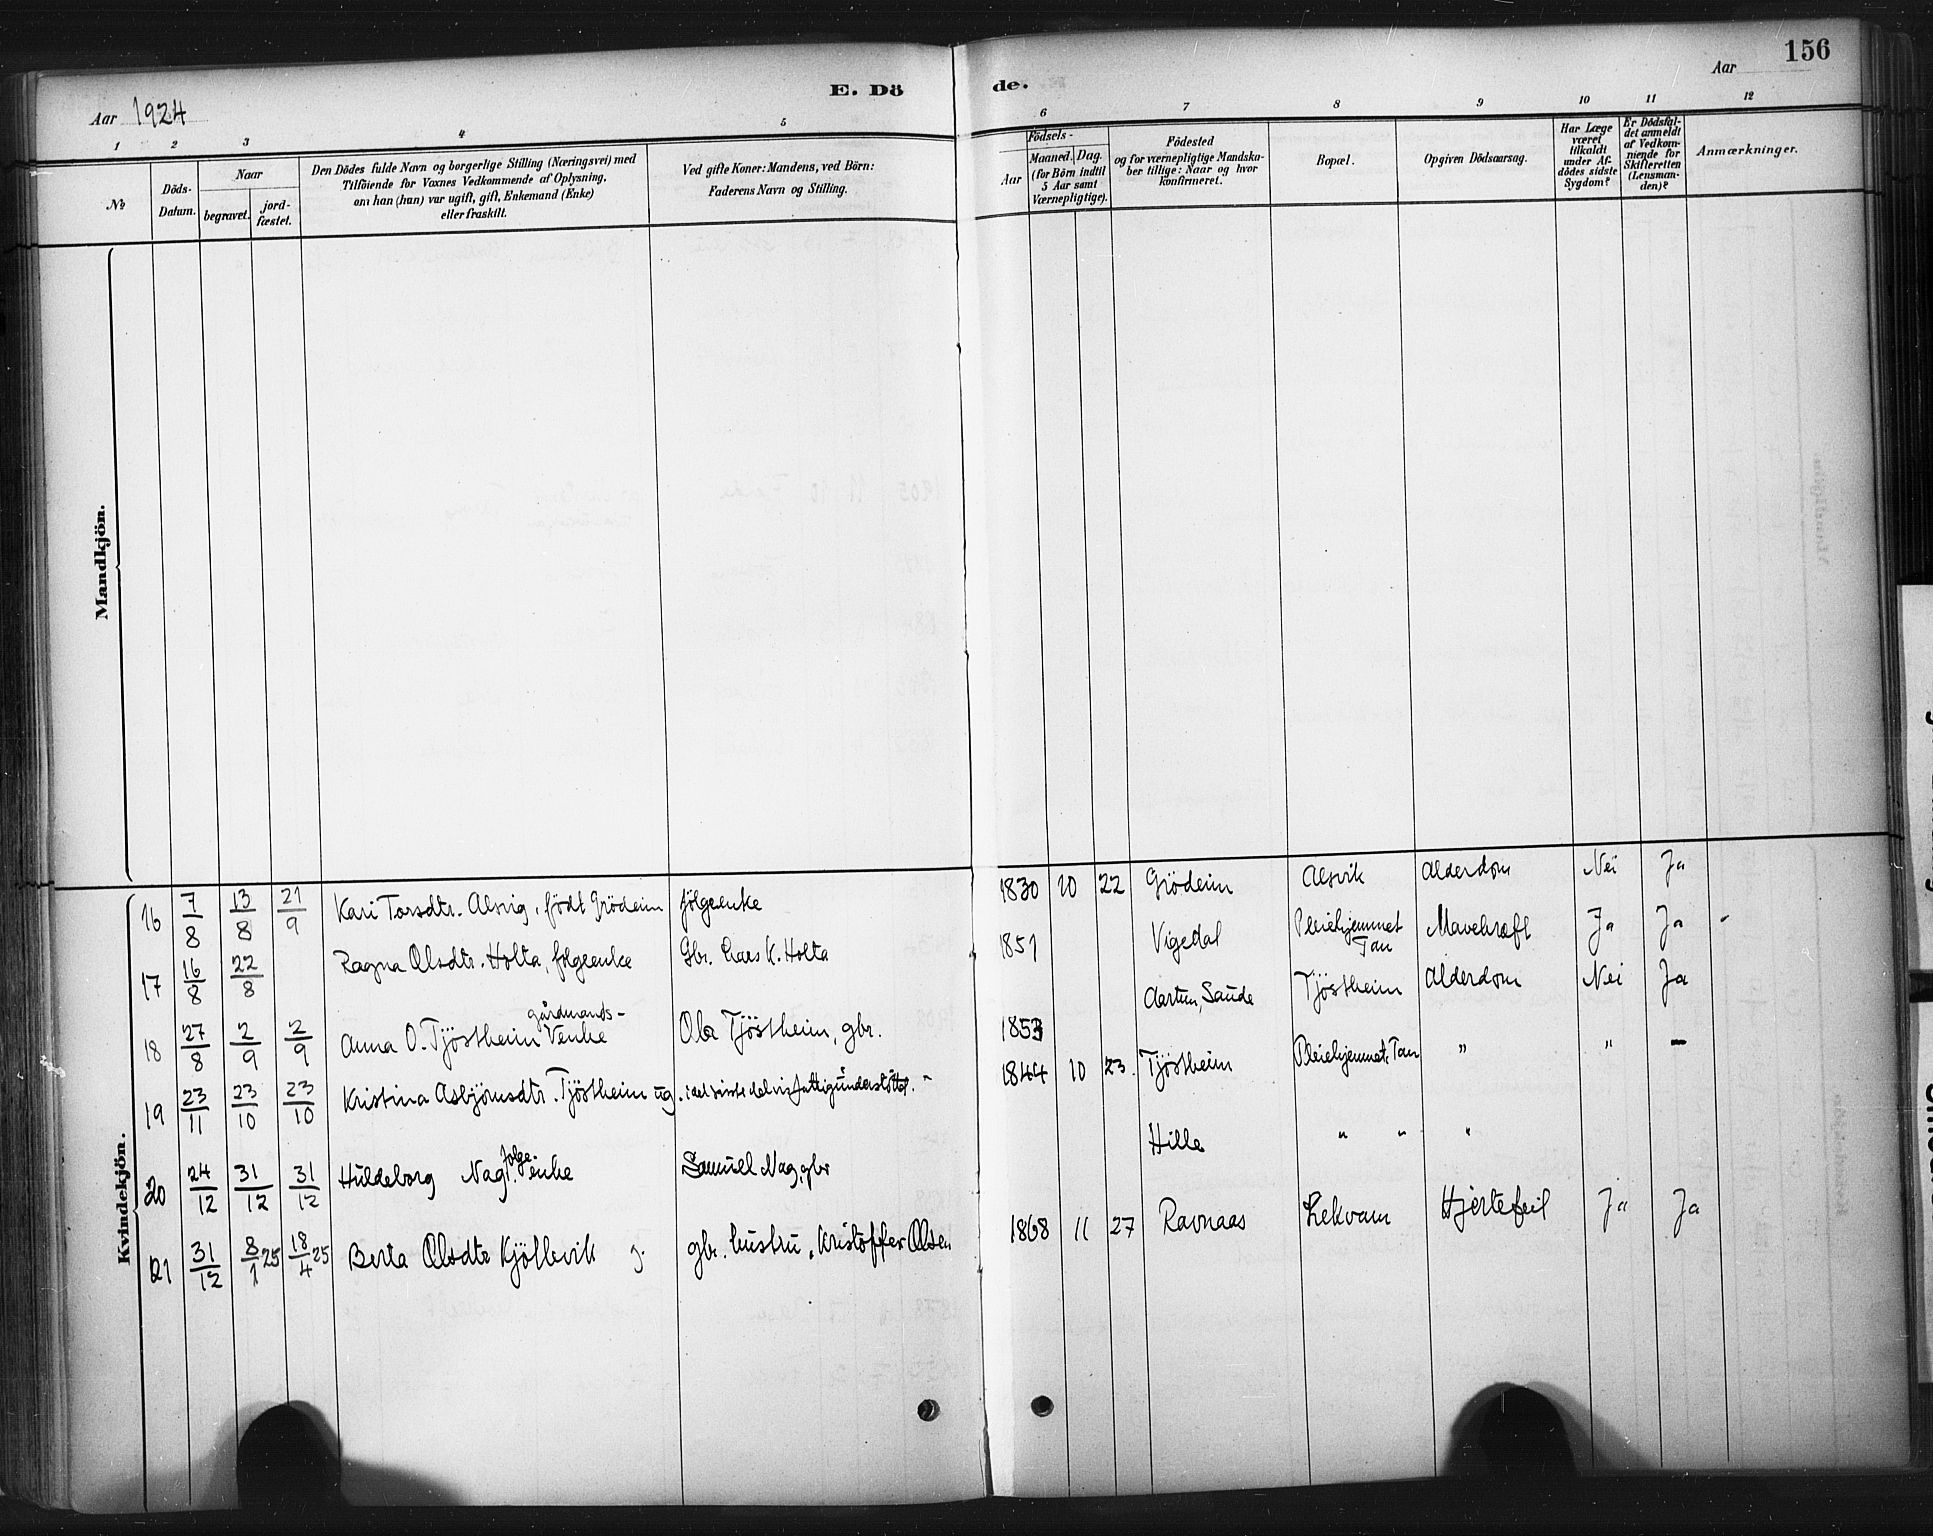 156
Aar 1924
E. Dö
de.
Aar
1 2 3 4 5 6 7 8 9 10 11 12
No
Döds-
Datum.
Naar
begravet.
jord-
fæstet.
Den Dödes fulde Navn og borgerlige Stilling (Næringsvei) med
Tilföiende for Voxnes Vedkommende af Oplysning,
om han (hun) var ugift, gift, Enkemand (Enke)
eller fraskilt.
Ved gifte Koner: Mandens, ved Börn:
Faderens Navn og Stilling.
Födsels-
Aar
Maaned. Dag.
(for Börn indtil
5 Aar samt
Værnepligtige).
Födested
og for værnepligtige Mandska-
ber tillige: Naar og hvor
konfirmeret.
Bopæl.
Opgiven Dödsaarsag.
Har Læge
været
tilkaldt
under Af-
dödes sidste
Sygdom?
Er Dödsfal-
det anmeldt
af Vedkom-
mende for
Skifteretten
(Lensman-
den)?
Anmærkninger.
Mandkjön.
Kvindekjön.
16 7/8 13/8 21/9 Kari Torsdtr. Alsvig, födt Grödeim fölgeenke 1830 10 22 Grödeim Alsvik Alderdom Nei Ja
17 16/8 22/8 Ragna Olsdtr. Holta, fölgeenke Gbr. Lars K. Holta 1851 Vigedal Pleiehjemmet Tau Mavekræft Ja Ja
gårdmands-
18 27/8 2/9 2/9 Anna O. Tjöstheim Venke Ola Tjöstheim, gbr. 1853 Aartun, Saude Tjöstheim Alderdom Nei Ja
19 23/11 23/10 23/10 Kristina Asbjörnsdtr. Tjöstheim ug. i det sidste delvis fattigunderstöttet. 1844 10 23 Tjöstheim Pleiehjemmet, Tau " " -
fölge-
20 24/12 31/12 31/12 Huldeborg Nag, enke Samuel Nag, gbr Hille " " "
21 31/12 8/1 25 18/4 25 Berta Olsdtr Kjöllevik g. gbr. hustru, Kristoffer Olsen 1868 11 27 Ravnaas Lekvam Hjertefeil Ja Ja